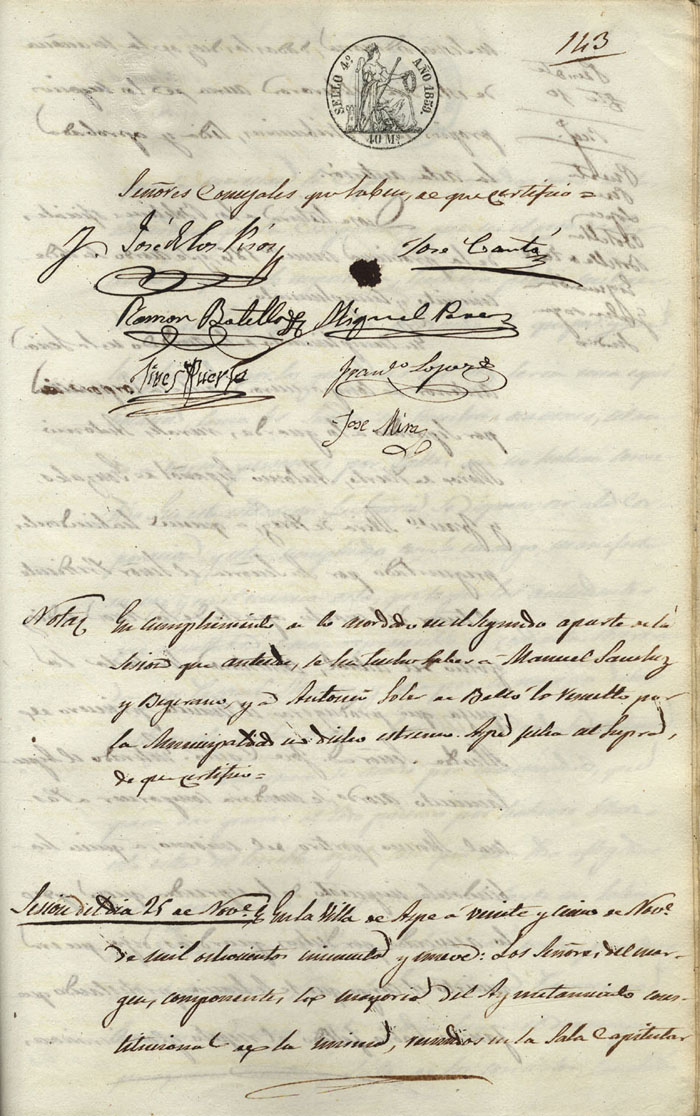 143
SELLO 4º AÑO 1859.
40 Ms.
Señores Concejales que saben, de que certifico =
José de los Pisos
José Cantó
Ramon Botella
Miguel Perez
Gines Puerto
Franco Lopez
Jose Mira
Nota En cumplimiento de lo acordado en el segundo aparte de la
sesion que antecede, se ha hecho saber a Manuel Sanchez
y Bigerano, y a Antonio Soler de Bello lo resuelto por
la Municipalidad en dicho estremo. Aspe fecha al supra,
de que certifico =
Sesion del dia 25 de Nove. En la Villa de Aspe a veinte y cinco de Nove.
de mil ochocientos cincuenta y nueve: Los Señores del mar-
gen, componentes la mayoria del Ayuntamiento cons-
titucional de la misma, reunidos en la Sala Capitular